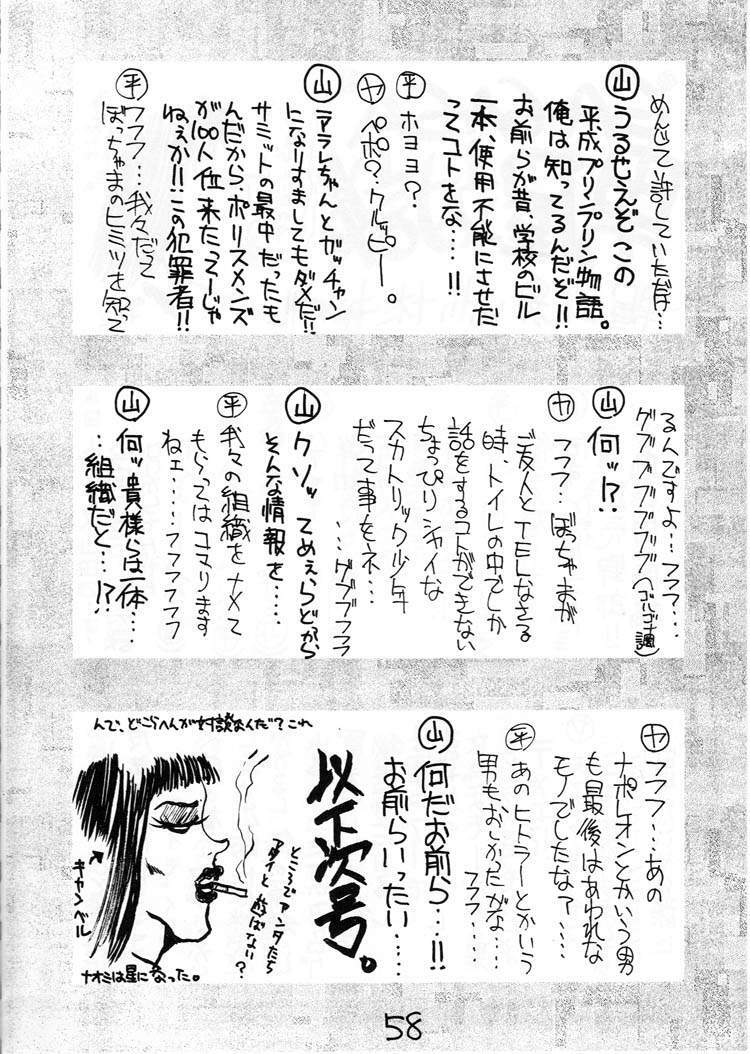 めんじて許していただけ…
㊤うるせえぞこの
平成プリンプリン物語。
俺は知ってるんだぞ!!
お前らが昔、学校のビル
一本、使用不能にさせた
ってコトをな…!!
㊥ホヨヨ?
ヤ ペポ?クルッピー。
山 アラレちゃんとガッチャン
になりすましてもダメだ!!
サミットの最中だったも
んだから、ポリスメンズ
が100人位来たってーじゃ
ねぇか!!この犯罪者!!
平 ウフフ…我々だって
ぼっちゃまのヒミツを知って
るんですよ…フフフ…
グブブブブブブ(ゴルゴ13調)
山 何ッ!?
ヤ フフフ…ぼっちゃまが
ご友人とTELしなさる
時、トイレの中でしか
話をするコトができない
ちょっぴりシャイな
スカトリック少年
だって事をネ…
…グブブフフフ
山 クソッてめぇらどから
そんな情報を……
平 我々の組織をナメて
もらってはコマります
ねェ……フフフフフ
山 何ッ貴様らは一体……
…組織だと…!?
ヤ フフフ…あの
ナポレオンとかいう男
も最後はあわれな
モノでしたなァ……
平 あのヒトラーとかいう
男もおしかったがな……
フフフ…
山 何だお前ら…!!
お前らいったい……
以下次号。
んで、どこらへんが対談なんだ?これ
ところでアンタたち
アタイと遊ばない?
キャンベル
ナオミは星になった。
58